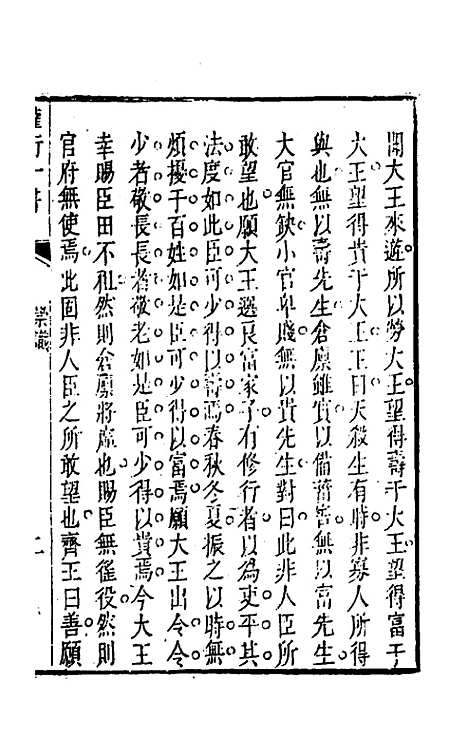 聞大王來遊所以勞大王望得壽于大王望得富于
大王望得貴于大王王曰天殺生有時非寡人所得
與也無以壽先生倉廩雖實以備菑害無以富先生
大官無缺小官卑賤無以貴先生對曰此非人臣所
敢望也願大王選良富家子有修行者以爲吏平其
法度如此臣可少得以壽焉春秋冬夏振之以時無
煩擾于百姓如是臣可少得以富焉願大王出令令
少者敬長長者敬老如是臣可少得以貴焉今大王
幸賜臣田不租然則倉廩將虛也賜臣無徭役然則
官府無使焉此固非人臣之所敢望也齊王曰善願